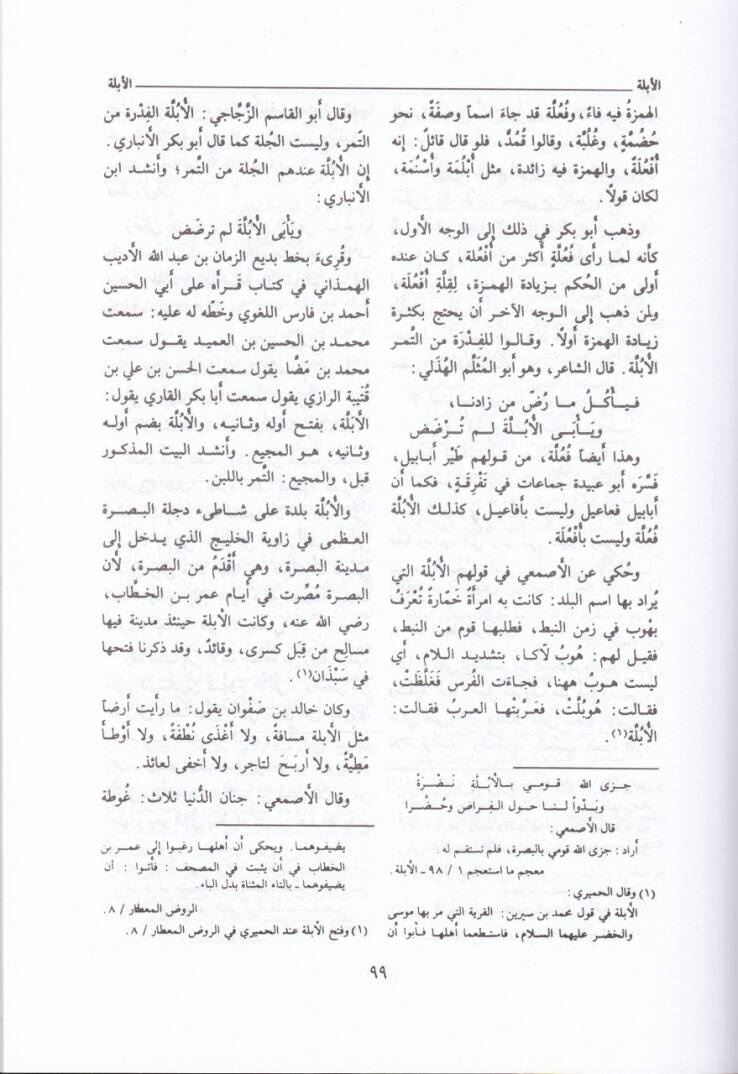 الأبلة
الأبلة
الهمزةُ فيه فاءً، وفُعُلَّة قد جاءَ اسماً وصفَةً، نحو
حُضُمَّةٍ، وغُلُبَّة، وقالوا قُمُدّ، فلو قال قائلٌ: إنه
أُفْعُلَةٌ، والهمزة فيه زائدة، مثل أُبْلُمَة وأُسْنُمَة،
لكان قولاً.
وذهب أبو بكر في ذلك إلى الوجه الأول،
كأنه لما رأى فُعُلَّةٍ أكثر من أُفْعُلة، كان عنده
أولى من الحُكم بزيادة الهمزة، لِقِلَّةِ أُفْعُلَة،
ولمن ذهب إلى الوجه الآخر أن يحتج بكثرة
زيادة الهمزة أولاً. وقالوا للفِدْرَة من التَّمر
الأُبُلَّة. قال الشاعر، وهو أبو المُثَلَّم الهُذَلي:
فيأكُلُ ما رُضّ من زادنا،
ويَأبَى الأُبُلَّةَ لم تُرْضَض
وهذا أيضاً فُعُلَّة، من قولهم طَيْر أبابيل،
فَسَّرَه أبو عبيدة جماعات في تَفْرِقَةٍ، فكما أن
أبابيل فعاعيل وليست بأفاعيل، كذلك الأُبُلَّة
فُعُلَّة وليست بأُفْعُلَة.
وحُكي عن الأصمعي في قولهم الأُبُلَّة التي
يُراد بها اسم البلد: كانت به امرأةٌ خَمّارةٌ تُعْرَفُ
بهُوب في زمن النبط، فطلبها قوم من النبط،
فقيل لهم: هُوبُ لاَكا، بتشديد اللام، أي
ليست هوبُ ههنا، فجاءَت الفُرس فَغَلَّظَتْ،
فقالت: هُوبُلَّتْ، فعَرَّبَتْها العربُ فقالت:
الأُبُلَّة(١).
جزى الله قومي بالأبلة نضرةً
وبَدْواً لنا حول الفِراض وحُضَّرا
قال الأصمعي:
أراد: جزى الله قومي بالبصرة، فلم تستقم له.
معجم ما استعجم ١ / ٩٨ ـ الأبلة.
(١) وقال الحميري:
الأبلة في قول محمد بن سيرين: القرية التي مر بها موسى
والخضر عليهما السلام، فاستطعما أهلها فأبوا أن
وقال أبو القاسم الزَّجاجي: الأُبُلَّة الفِدرة من
التّمر، وليست الجُلة كما قال أبو بكر الأنباري.
إن الأُبُلَّة عندهم الجُلة من التَّمر؛ وأنشد ابن
الأنباري:
ويَأبَى الأُبُلَّة لم ترضَض
وقُرىءَ بخط بديع الزمان بن عبد الله الأديب
الهمذاني في كتاب قرأه على أبي الحسين
أحمد بن فارس اللغوي وخَطّه له عليه: سمعت
محمد بن الحسين بن العميد يقول سمعت
محمد بن مَضّا يقول سمعت الحسن بن علي بن
قُتَيبة الرازي يقول سمعت أبا بكر القاري يقول:
الأَبَلَّة، بفتح أوله وثانيه، والأُبُلَّة بضم أوله
وثانيه، هو المجيع. وأنشد البيت المذكور
قبل، والمجيع: التَّمر باللبن.
والأُبُلَّة بلدة على شاطىء دجلة البصرة
العظمى في زاوية الخليج الذي يدخل إلى
مدينة البصرة، وهي أقْدَمُ من البصرة، لأن
البصرة مُصِّرت في أيام عمر بن الخطَّاب،
رضي الله عنه، وكانت الأبلة حينئذ مدينة فيها
مسالح من قِبَل كسرى، وقائدٌ، وقد ذكرنا فتحها
في سَبْذَان(١).
وكان خالد بن صَفْوان يقول: ما رأيت أرضاً
مثل الأبلة مسافةً، ولا أغْذَى نُطْفَةً، ولا أوْطأَ
مَطِيَّةً، ولا أربَحَ لتاجر، ولا أخفى لعائذ.
وقال الأصمعي: جنان الدُّنيا ثلاث: غُوطة
يضيفوهما. ويحكى أن أهلها رغبوا إلى عمر بن
الخطاب في أن يثبت في المصحف: فأتوا: أن
يضيفوهما ـ بالتاء المثناة بدل الباء.
الروض المعطار / ٨.
(١) وفتح الأبلة عند الحميري في الروض المعطار / ٨.
٩٩